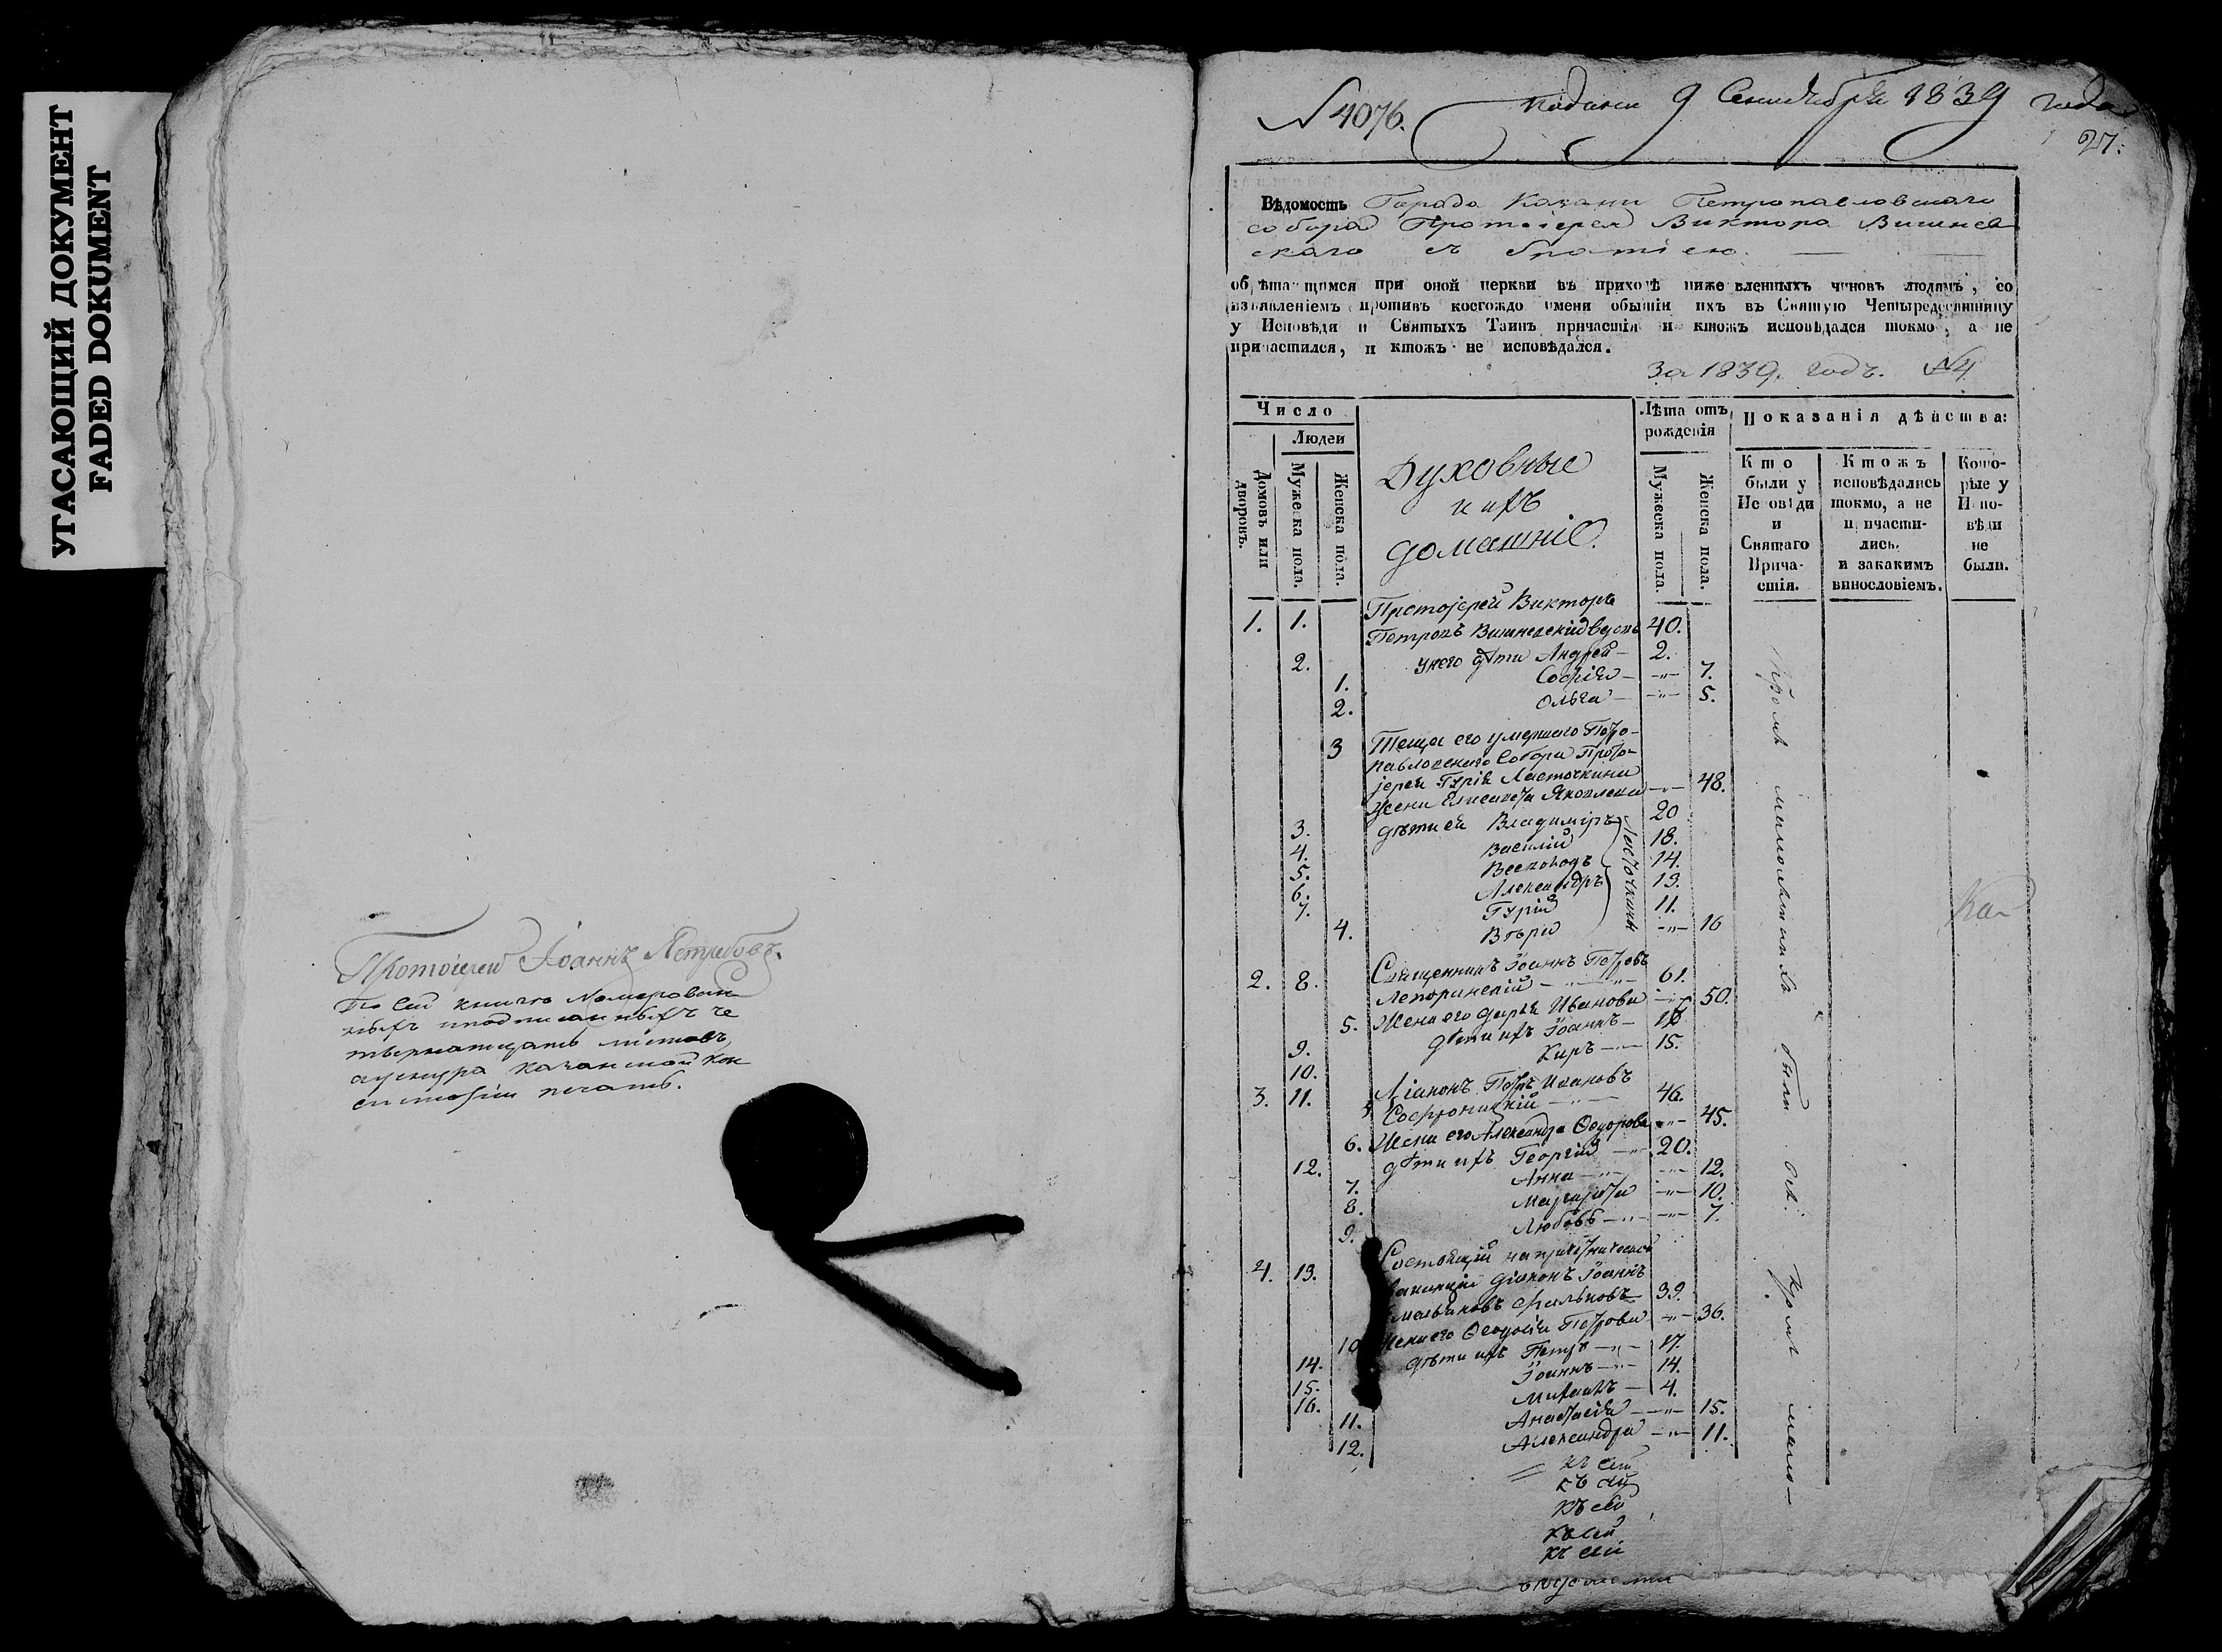 УГАСАЮЩИЙ ДОКУМЕНТ
FADED DOKUMENT
Протоіерей Іоаннъ Ястребовъ.
По сей книгѣ номерован-
ныхъ
листовъ,
печать.
N 4076. Подана 9 Сентября 1839 года
27.
Вѣдомость Города Казани Петропавловскаго
собора Протоіерея Виктора Вишнев
скаго съ братіею.
обрѣтающимся при оной церкви въ приходѣ нижеявленныхъ чиновъ людямъ, со
изъявленіемъ противъ коегождо имени обытіи ихъ въ Святую Четыредесятницу
у Исповѣди и Святыхъ Таинъ причастія и ктожъ исповѣдался токмо, а не
причастился, и ктожъ не исповѣдался.
За 1839. годъ. №4
Число
Людей
Домовъ или дворовъ.
Мужеска пола.
Женска пола.
Духовные
и ихъ
домашніе.
Лѣта отъ
рожденія
Мужеска пола.
Женска пола.
Показанія дѣйства:
Кто
были у
Исповѣди
и
Святаго
Прича-
стія.
Ктожъ
исповѣдались
токмо, а не
причасти-
лись.
и закакимъ
винословіемъ.
Кото-
рые у
Испо-
вѣди
не
были.
1. 1. Протоіерей Викторъ
Петровъ Вишневскій вдовъ 40.
2. у него дѣти Андрей — 2.
1. Софія — -"- 7.
2. Ольга — -"- 5.
3 Теща его умершаго Петро-
павловскаго Собора Прото-
іерея Гурія Ласточкина
жена Елисавета Яковлева -"- 48.
3. дѣти ея Владиміръ 20
4. Василій 18.
5. Всеволодъ 14.
6. Александръ 13.
7. Гурій 11.
4. Вѣра -"- 16
Ласточкины
2. 8. Священникъ Іоаннъ Петровъ
Лепоринскій 61.
5. Жена его Дарья Иванова -"- 50.
9. дѣти ихъ Іоаннъ —
10. Киръ — 15.
3. 11. Діаконъ Петръ Ивановъ
Софроницкій 46.
6. Жена его Александра Ѳеодорова -"- 45.
12. дѣти ихъ Георгій 20.
7. Анна -"- 12.
8. Маргарита -"- 10.
9. Любовь -"- 7.
4. 13. Состоящій на причетнической
ваканціи діаконъ Іоаннъ
Емельяновъ Фальковъ 39.
10 Жена его Ѳеодосія Петрова -"- 36.
14. дѣти ихъ Петръ -"- 17.
15. Іоаннъ -"- 14.
16. Михаилъ — 4.
11. Анастасія -"- 15.
12. Александра -"- 11.
Кромѣ малолѣтнихъ были всѣ.
Кромѣ мало-
Ка
къ сей
къ сей
къ сей
къ сей
къ сей